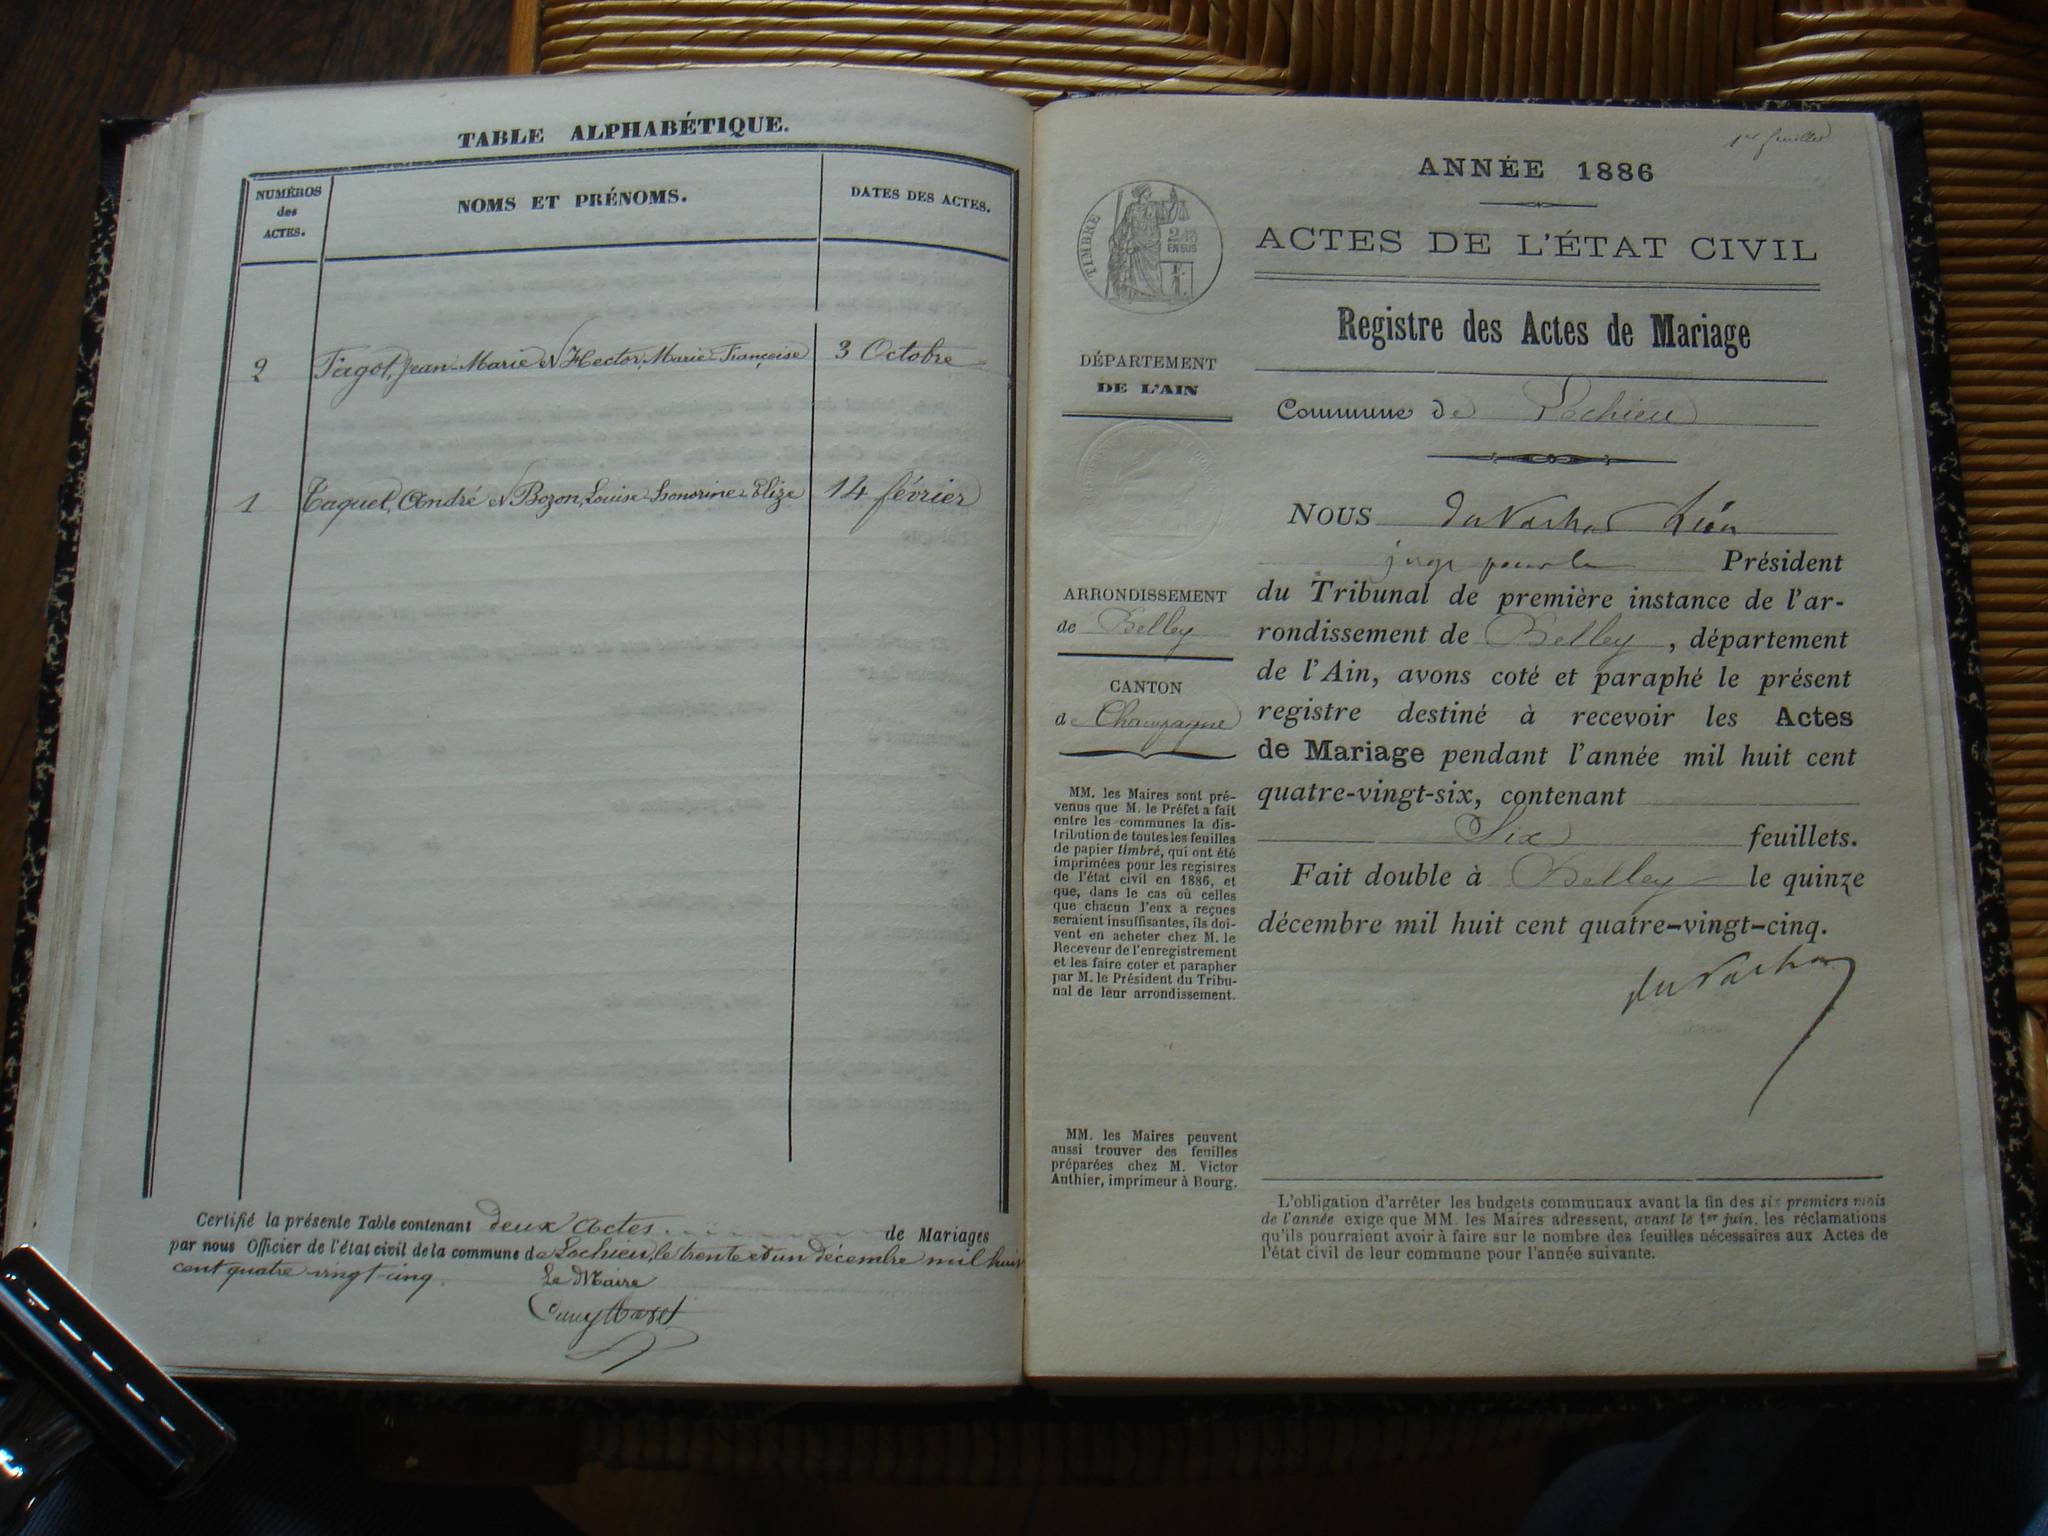 TABLE ALPHABÉTIQUE.
NUMÉROS
des
ACTES.
NOMS ET PRÉNOMS.
DATES DES ACTES.
2 Jean-Marie et Hector, Marie Françoise 3 Octobre
1 Taquet, André et Bozon, Louise Honorine Elize 14 février
Certifié la présente Table contenant deux Actes de Mariages
par nous Officier de l'état civil de la commune de Lochieu, le trente et un décembre mil huit
cent quatre-vingt-cinq.
Le Maire
1er feuillet
ANNÉE 1886
ACTES DE L'ÉTAT CIVIL
Registre des Actes de Mariage
Commune de Lochieu
TIMBRE
EN SUS
DÉPARTEMENT
DE L'AIN
ARRONDISSEMENT
de Belley
CANTON
de Champagne
MM. les Maires sont pré-
venus que M. le Préfet a fait
entre les communes la dis-
tribution de toutes les feuilles
de papier timbré, qui ont été
imprimées pour les registres
de l'état civil en 1886, et
que, dans le cas où celles
que chacun d'eux a reçues
seraient insuffisantes, ils doi-
vent en acheter chez M. le
Receveur de l'enregistrement
et les faire coter et parapher
par M. le Président du Tribu-
nal de leur arrondissement.
MM. les Maires peuvent
aussi trouver des feuilles
préparées chez M. Victor
Authier, imprimeur à Bourg.
NOUS
juge pour le Président
du Tribunal de première instance de l'ar-
rondissement de Belley, département
de l'Ain, avons coté et paraphé le présent
registre destiné à recevoir les Actes
de Mariage pendant l'année mil huit cent
quatre-vingt-six, contenant
Six feuillets.
Fait double à Belley le quinze
décembre mil huit cent quatre-vingt-cinq.
L'obligation d'arrêter les budgets communaux avant la fin des six premiers mois
de l'année exige que MM. les Maires adressent, avant le 1er juin, les réclamations
qu'ils pourraient avoir à faire sur le nombre des feuilles nécessaires aux Actes de
l'état civil de leur commune pour l'année suivante.